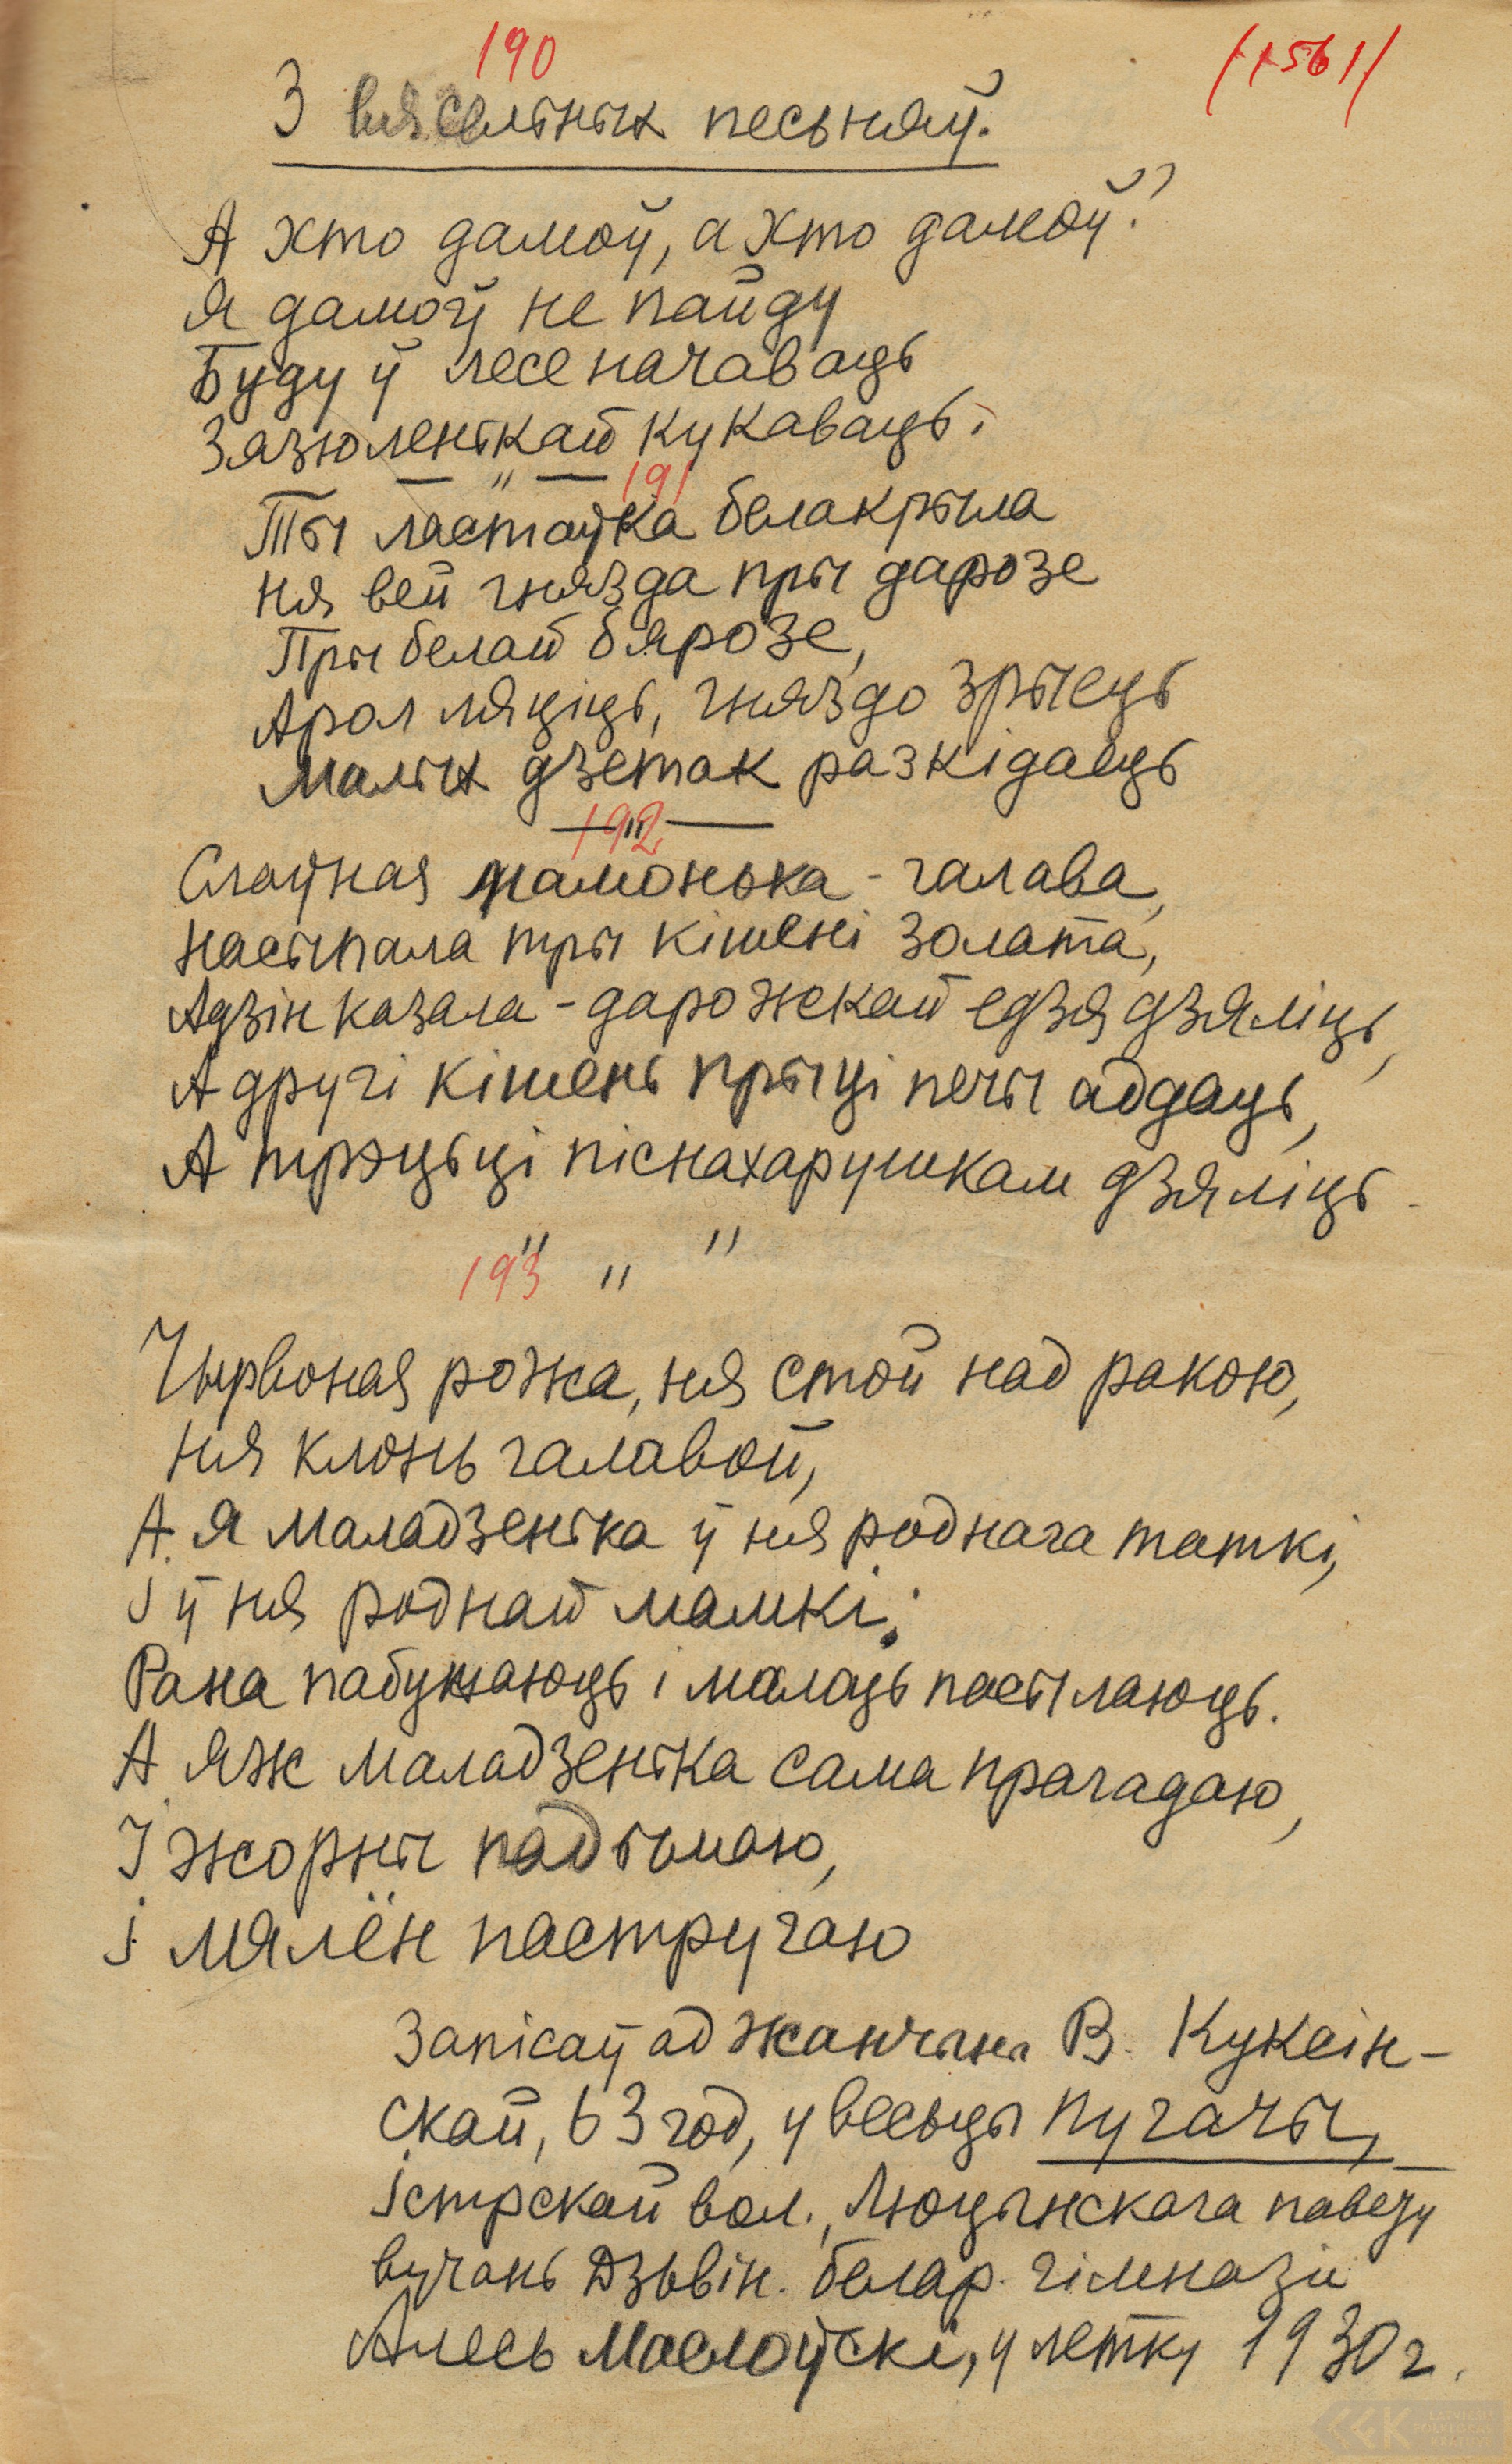 190
/1561/
З вясельных песьняў.
А хто дамоў, а хто дамоў?
Я дамоў не пайду
Буду ў лесе начаваць
Зязюленькай кукаваць.
— " —
191
Ты ластаўка белакрыла
Ня вей гнязда пры дарозе
Пры белай бярозе,
Арол ляціць, гняздо зрыець
Малых дзетак разкідаець
— " —
192
Слаўная мамонька - галава,
Насыпала тры кішені золата,
Адзін казала - дарожкай едзя дзяліць,
А другі кішень прыці печы аддаць,
А трэцьці піснахарушкам дзяліць
" " "
193
Чырвоная рожа, ня стой над ракою,
ня клонь галавой,
А я маладзенька ў ня роднага таткі,
І ў ня роднай мамкі;
Рана пабужаюць і малоць пасылаюць.
А яж маладзенька сама прагадаю,
І жорны падымаю,
і мялён пастругаю
Запісаў ад жанчыны В. Куксін-
скай, 63 год, у весьцы Пугачы,
Істрскай вол., Люцынскага павету
вучань Дзьвін. белар. гімназіі
Алесь Маслоўскі, у летку 1930 г.